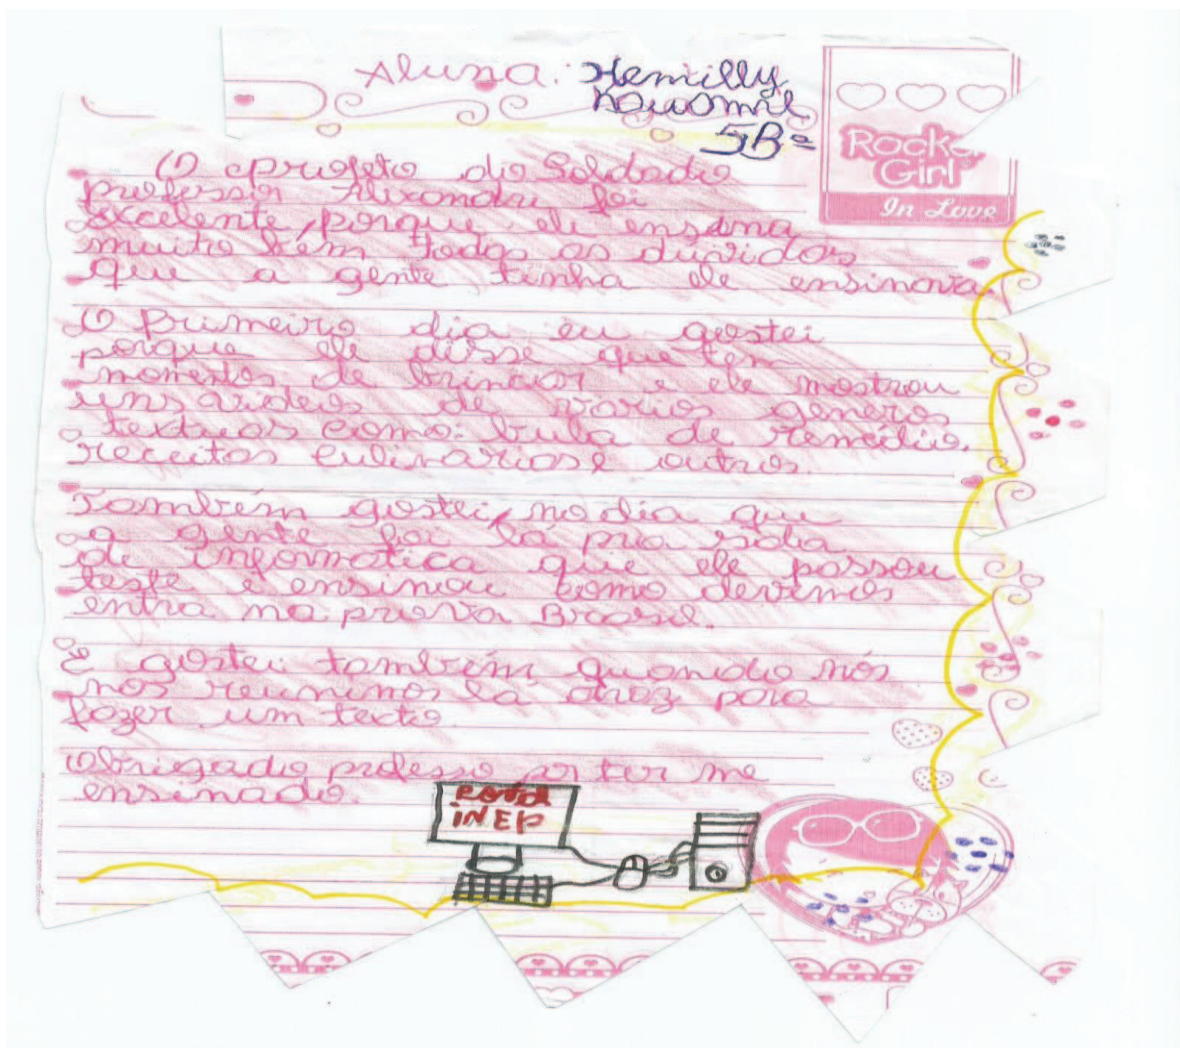 Aluna: Hemilly
5Bª
Rocker
Girl
In Love
O projeto do Soldado
professor Alixandri foi
excelente, porque ele ensina
muito bem todas as duvidas
que a gente tinha ele ensinava.
O Primeiro dia eu gostei
porque ele disse que tem
momentos de brincar e ele mostrou
uns videos de varios generos
textuas como: bula de remédio,
receitas culinarias e outros.
Também gostei, no dia que
a gente foi lá pra sala
de informatica que ele passou
teste e ensinou como devemos
entra na prova Brasil.
E gostei também quando nós
nos reunimos la atraz para
fazer um texto.
Obrigado professo por ter me
ensinado.
iNEP